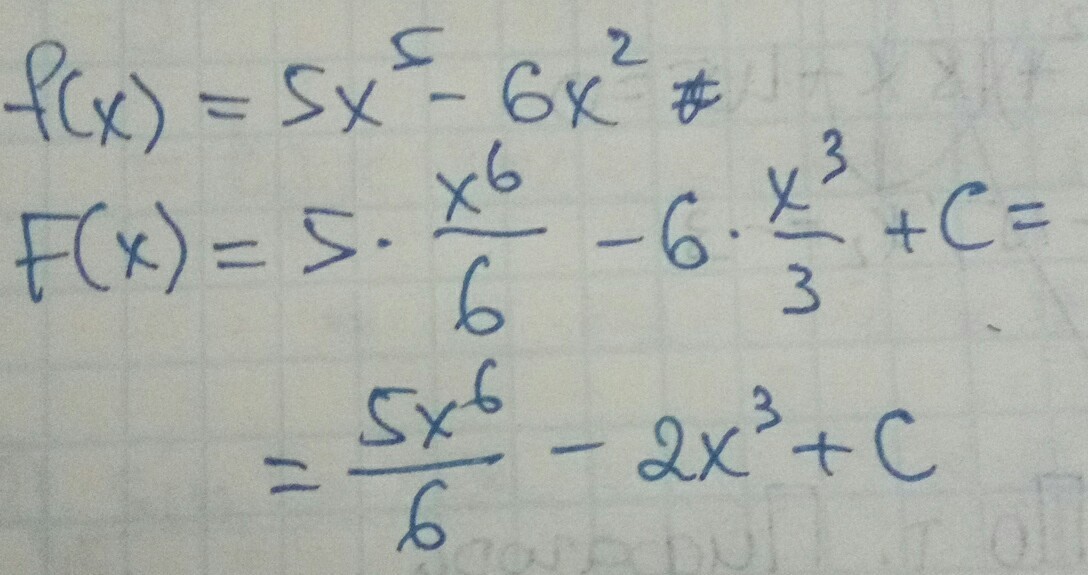 f(x) = 5x⁵ - 6x²
F(x) = 5 · x⁶/6 - 6 · x³/3 + C =
= 5x⁶/6 - 2x³ + C